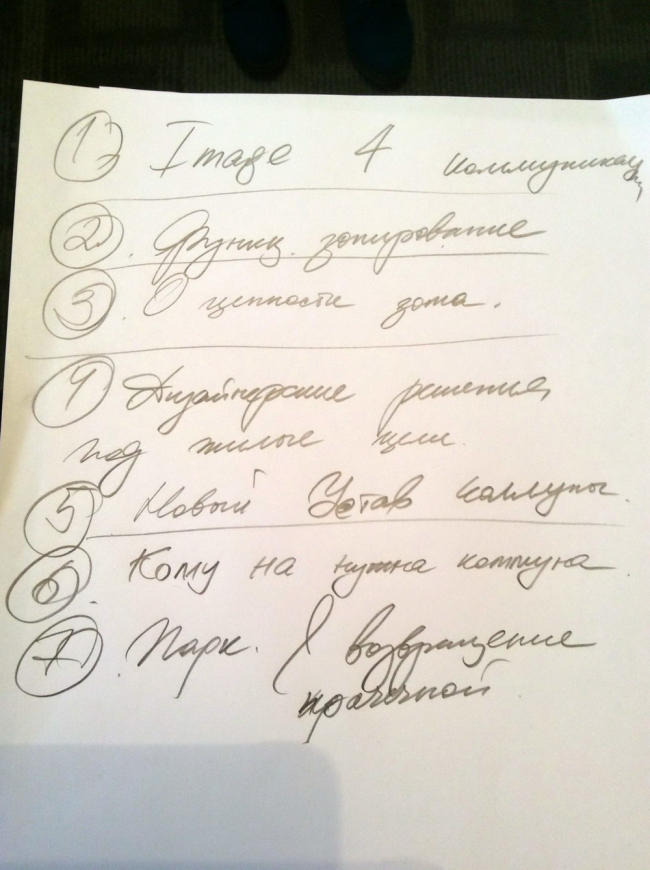 1) Image 4 коммуникации
2). Функц. зонирование
3. О ценности дома.
4) Дизайнерские решения
под жилые цели.
5) Новый Устав коммуны.
6. Кому на нужна коммуна
7). Парк. возвращение
прачечной